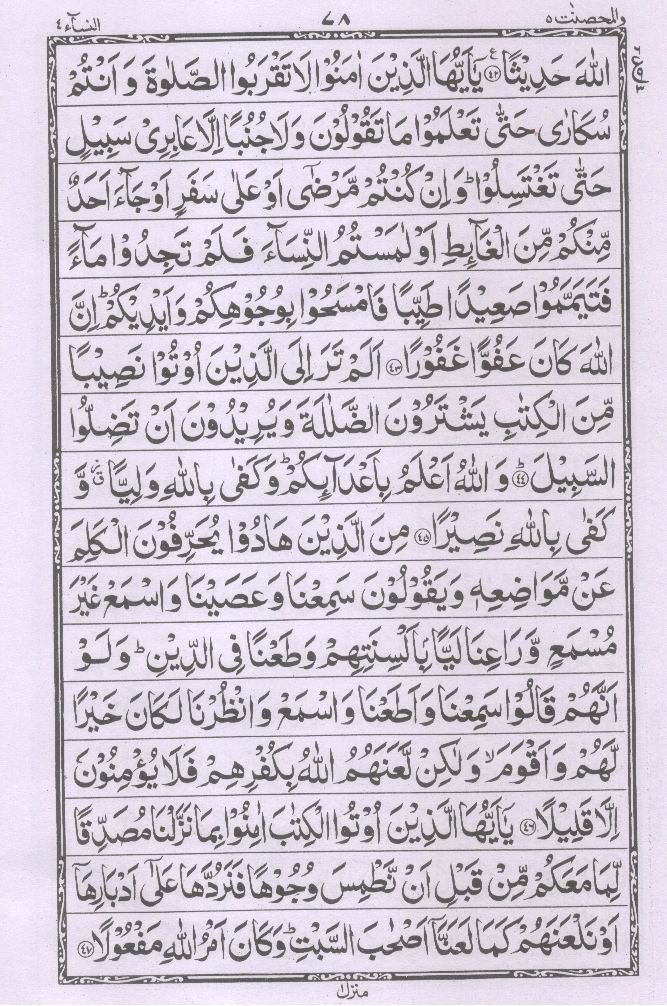 والمحصنٰت ٥ ٧٨ النسآء ٤
اللّٰهَ حَدِيْثًا ﴿٤٢﴾ ع يٰۤاَيُّهَا الَّذِيْنَ اٰمَنُوْا لَا تَقْرَبُوا الصَّلٰوةَ وَ اَنْتُمْ
سُكَارٰى حَتّٰى تَعْلَمُوْا مَا تَقُوْلُوْنَ وَلَا جُنُبًا اِلَّا عَابِرِىْ سَبِيْلٍ
حَتّٰى تَغْتَسِلُوْا ؕ وَ اِنْ كُنْتُمْ مَّرْضٰۤى اَوْ عَلٰى سَفَرٍ اَوْ جَآءَ اَحَدٌ
مِّنْكُمْ مِّنَ الْغَآىِٕطِ اَوْ لٰمَسْتُمُ النِّسَآءَ فَلَمْ تَجِدُوْا مَآءً
فَتَيَمَّمُوْا صَعِيْدًا طَيِّبًا فَامْسَحُوْا بِوُجُوْهِكُمْ وَ اَيْدِيْكُمْ ؕ اِنَّ
اللّٰهَ كَانَ عَفُوًّا غَفُوْرًا ﴿٤٣﴾ اَلَمْ تَرَ اِلَى الَّذِيْنَ اُوْتُوْا نَصِيْبًا
مِّنَ الْكِتٰبِ يَشْتَرُوْنَ الضَّلٰلَةَ وَ يُرِيْدُوْنَ اَنْ تَضِلُّوا
السَّبِيْلَ ؕ ﴿٤٤﴾ وَ اللّٰهُ اَعْلَمُ بِاَعْدَآىِٕكُمْ ؕ وَ كَفٰى بِاللّٰهِ وَلِيًّا ۗۙ وَّ
كَفٰى بِاللّٰهِ نَصِيْرًا ﴿٤٥﴾ مِنَ الَّذِيْنَ هَادُوْا يُحَرِّفُوْنَ الْكَلِمَ
عَنْ مَّوَاضِعِهٖ وَ يَقُوْلُوْنَ سَمِعْنَا وَ عَصَيْنَا وَ اسْمَعْ غَيْرَ
مُسْمَعٍ وَّ رَاعِنَا لَيًّۢا بِاَلْسِنَتِهِمْ وَ طَعْنًا فِى الدِّيْنِ ؕ وَ لَوْ
اَنَّهُمْ قَالُوْا سَمِعْنَا وَ اَطَعْنَا وَ اسْمَعْ وَ انْظُرْنَا لَكَانَ خَيْرًا
لَّهُمْ وَ اَقْوَمَ ۙ وَ لٰكِنْ لَّعَنَهُمُ اللّٰهُ بِكُفْرِهِمْ فَلَا يُؤْمِنُوْنَ
اِلَّا قَلِيْلًا ﴿٤٦﴾ يٰۤاَيُّهَا الَّذِيْنَ اُوْتُوا الْكِتٰبَ اٰمِنُوْا بِمَا نَزَّلْنَا مُصَدِّقًا
لِّمَا مَعَكُمْ مِّنْ قَبْلِ اَنْ نَّطْمِسَ وُجُوْهًا فَنَرُدَّهَا عَلٰۤى اَدْبَارِهَاۤ
اَوْ نَلْعَنَهُمْ كَمَا لَعَنَّاۤ اَصْحٰبَ السَّبْتِ ؕ وَ كَانَ اَمْرُ اللّٰهِ مَفْعُوْلًا ﴿٤٧﴾
منزل ١